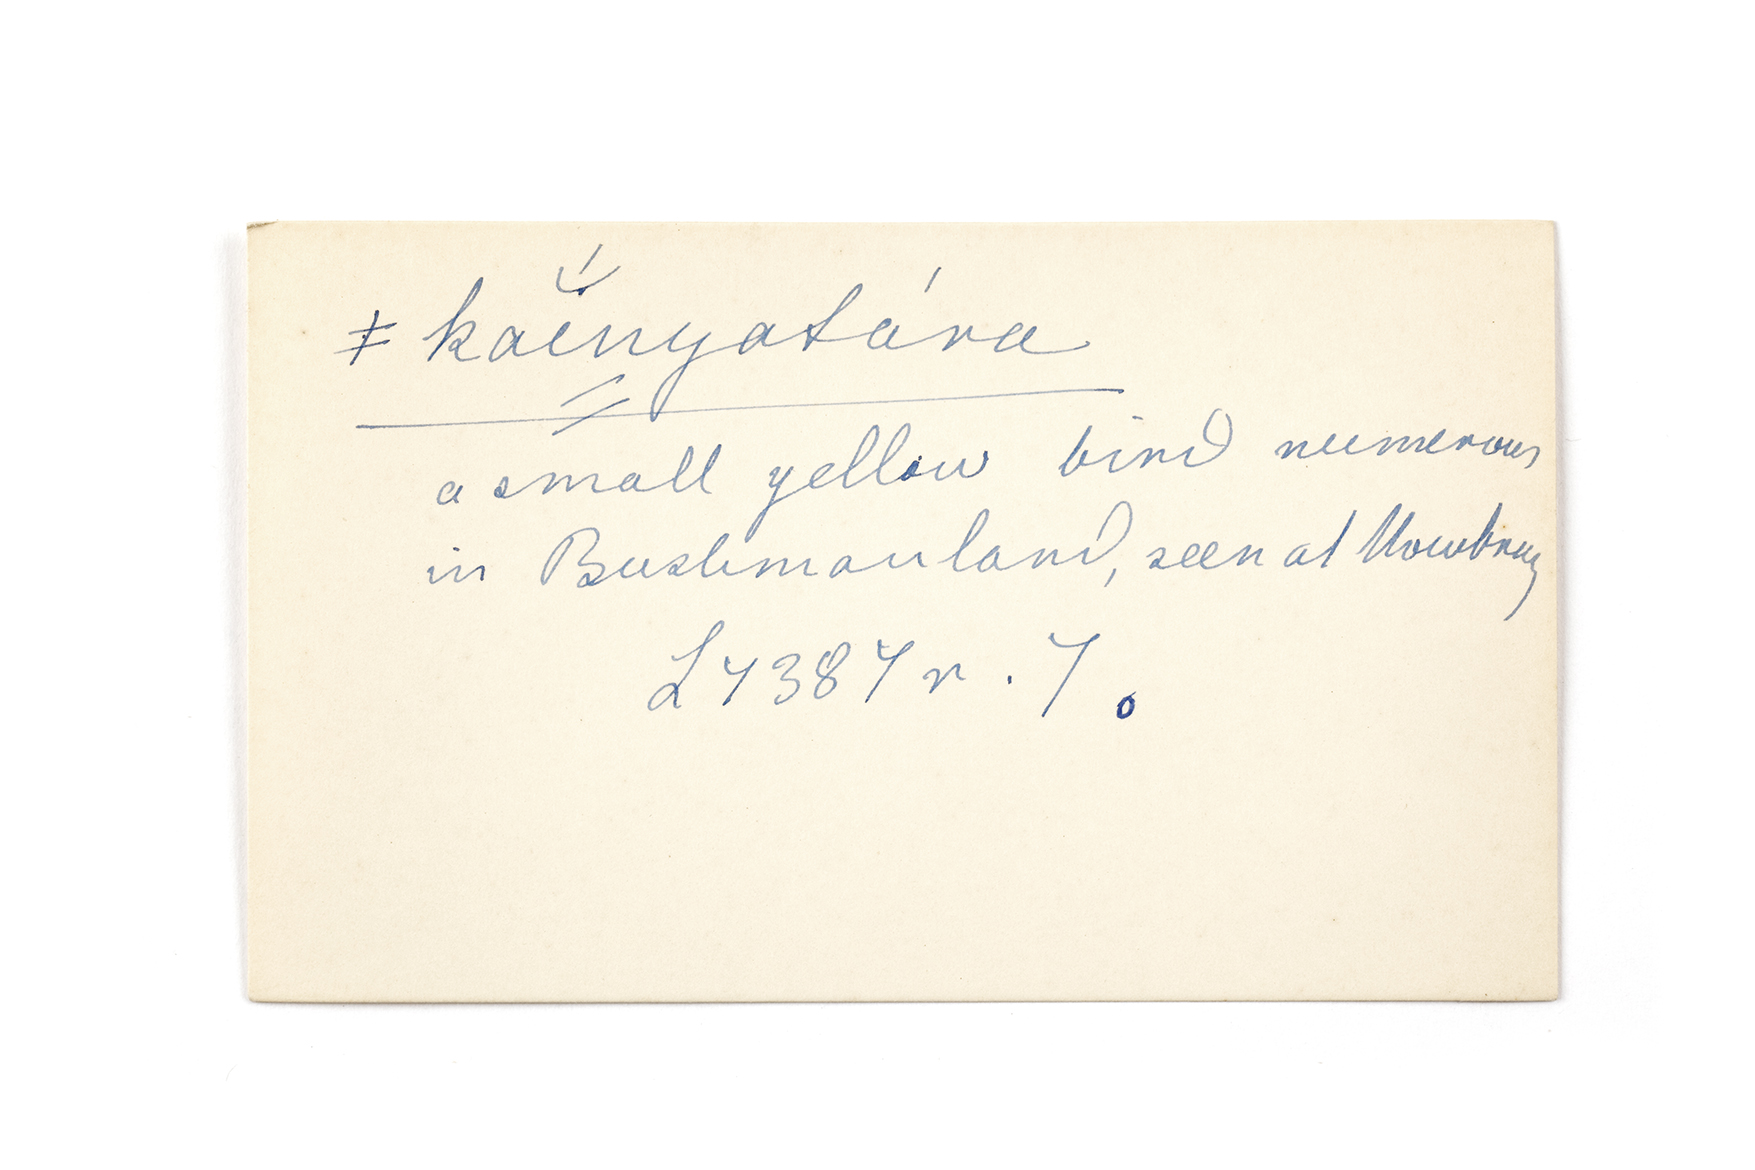 ǂkaĕ́nyatára
a small yellow bird numerous
in Bushmanland, seen at Mowbray
L 7387 r. 7.